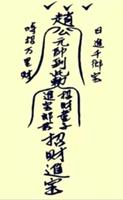 日進千鄉宝
趙公元帥到
時招万里財
招財童子
進宝郎君
招財進宝